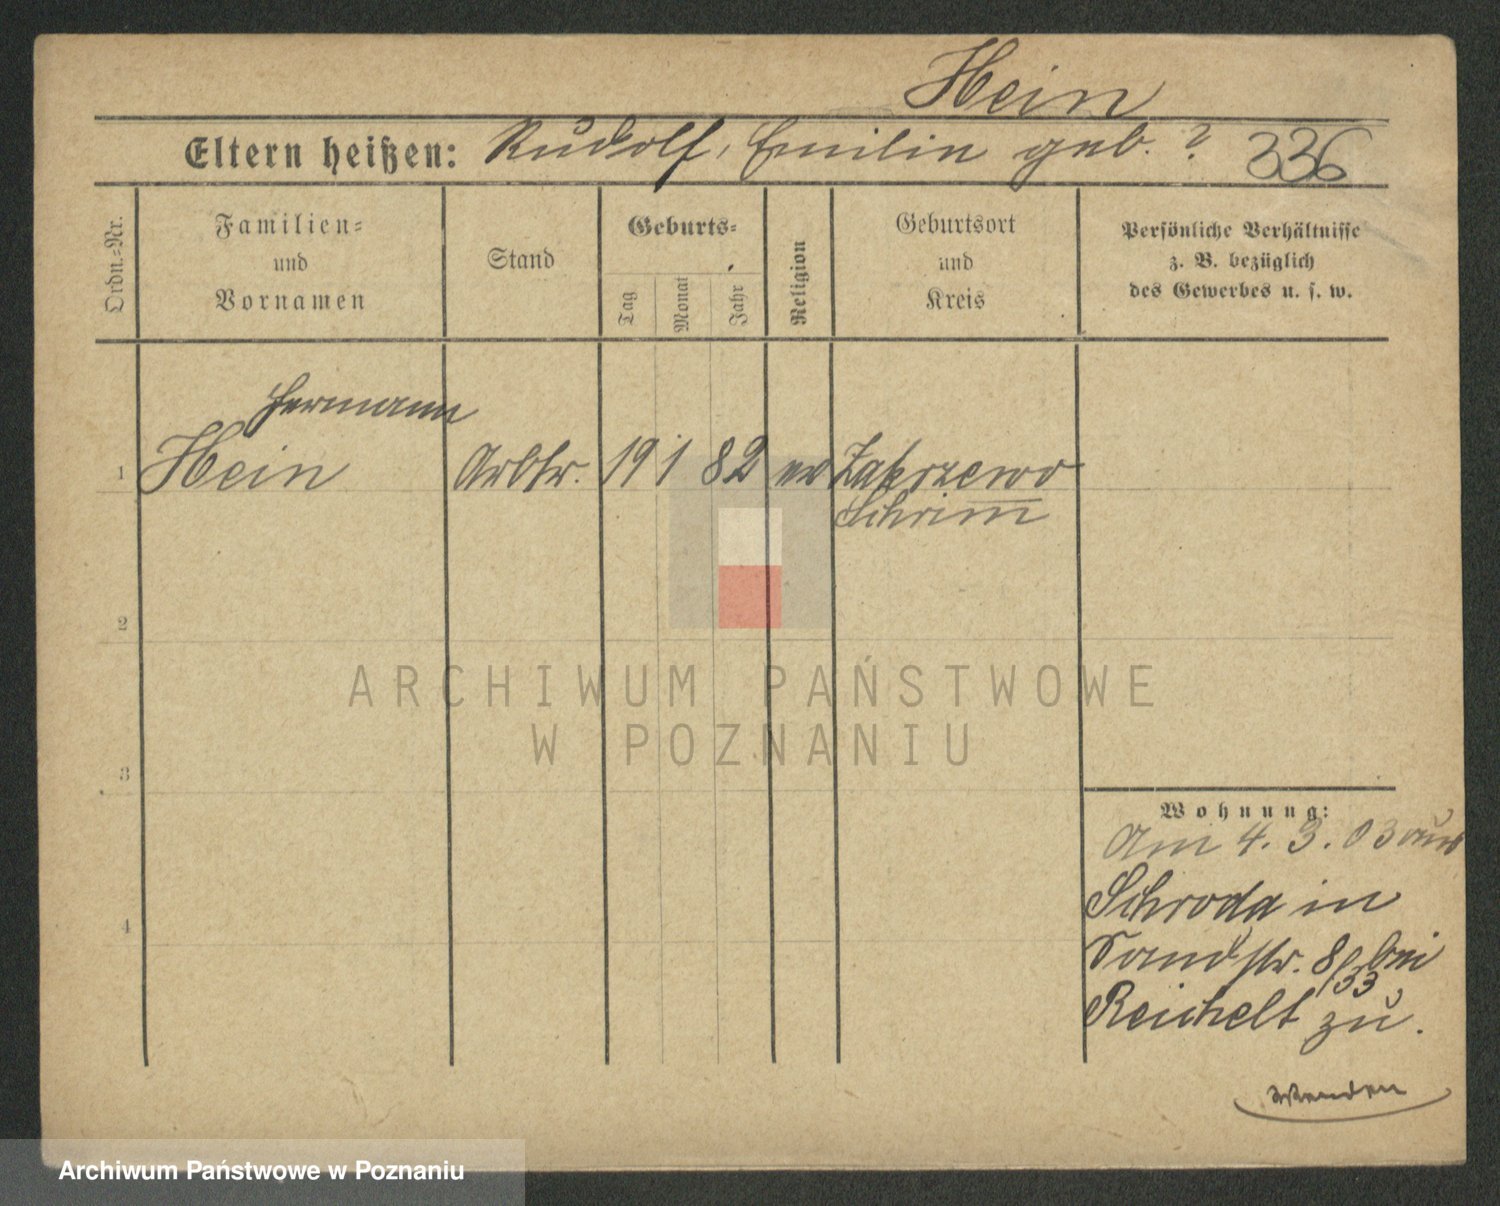 Hein
Eltern heißen: Rudolf, Emilie geb. ? 336
Ordn.-Nr.
Familien-
und
Vornamen
Stand
Geburts-
Tag
Monat
Jahr
Religion
Geburtsort
und
Kreis
Persönliche Verhältnisse
z. B. bezüglich
des Gewerbes u. s. w.
Hermann
1 Hein Arbtr. 19 1 82 ev Zakrzewo
Schrimm
2
ARCHIWUM PAŃSTWOWE
W POZNANIU
3
Wohnung:
Am 4. 3. 03 aus
4
Schroda in
Sandstr. 8 bei
Reichelt zu.
Wenden
Archiwum Państwowe w Poznaniu